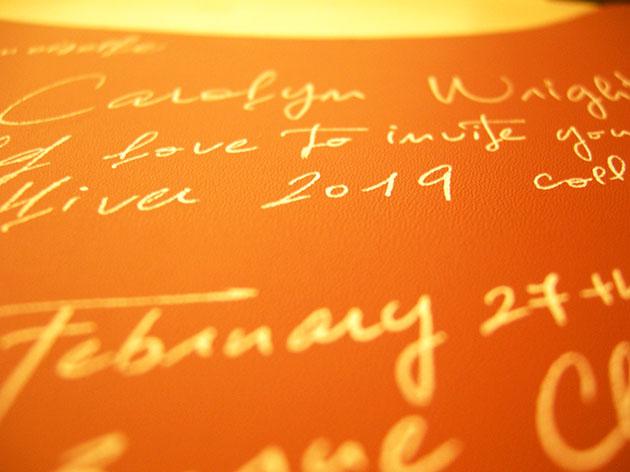 Carolyn Wright
love to invite you
Hiver 2019 coll
February 27th